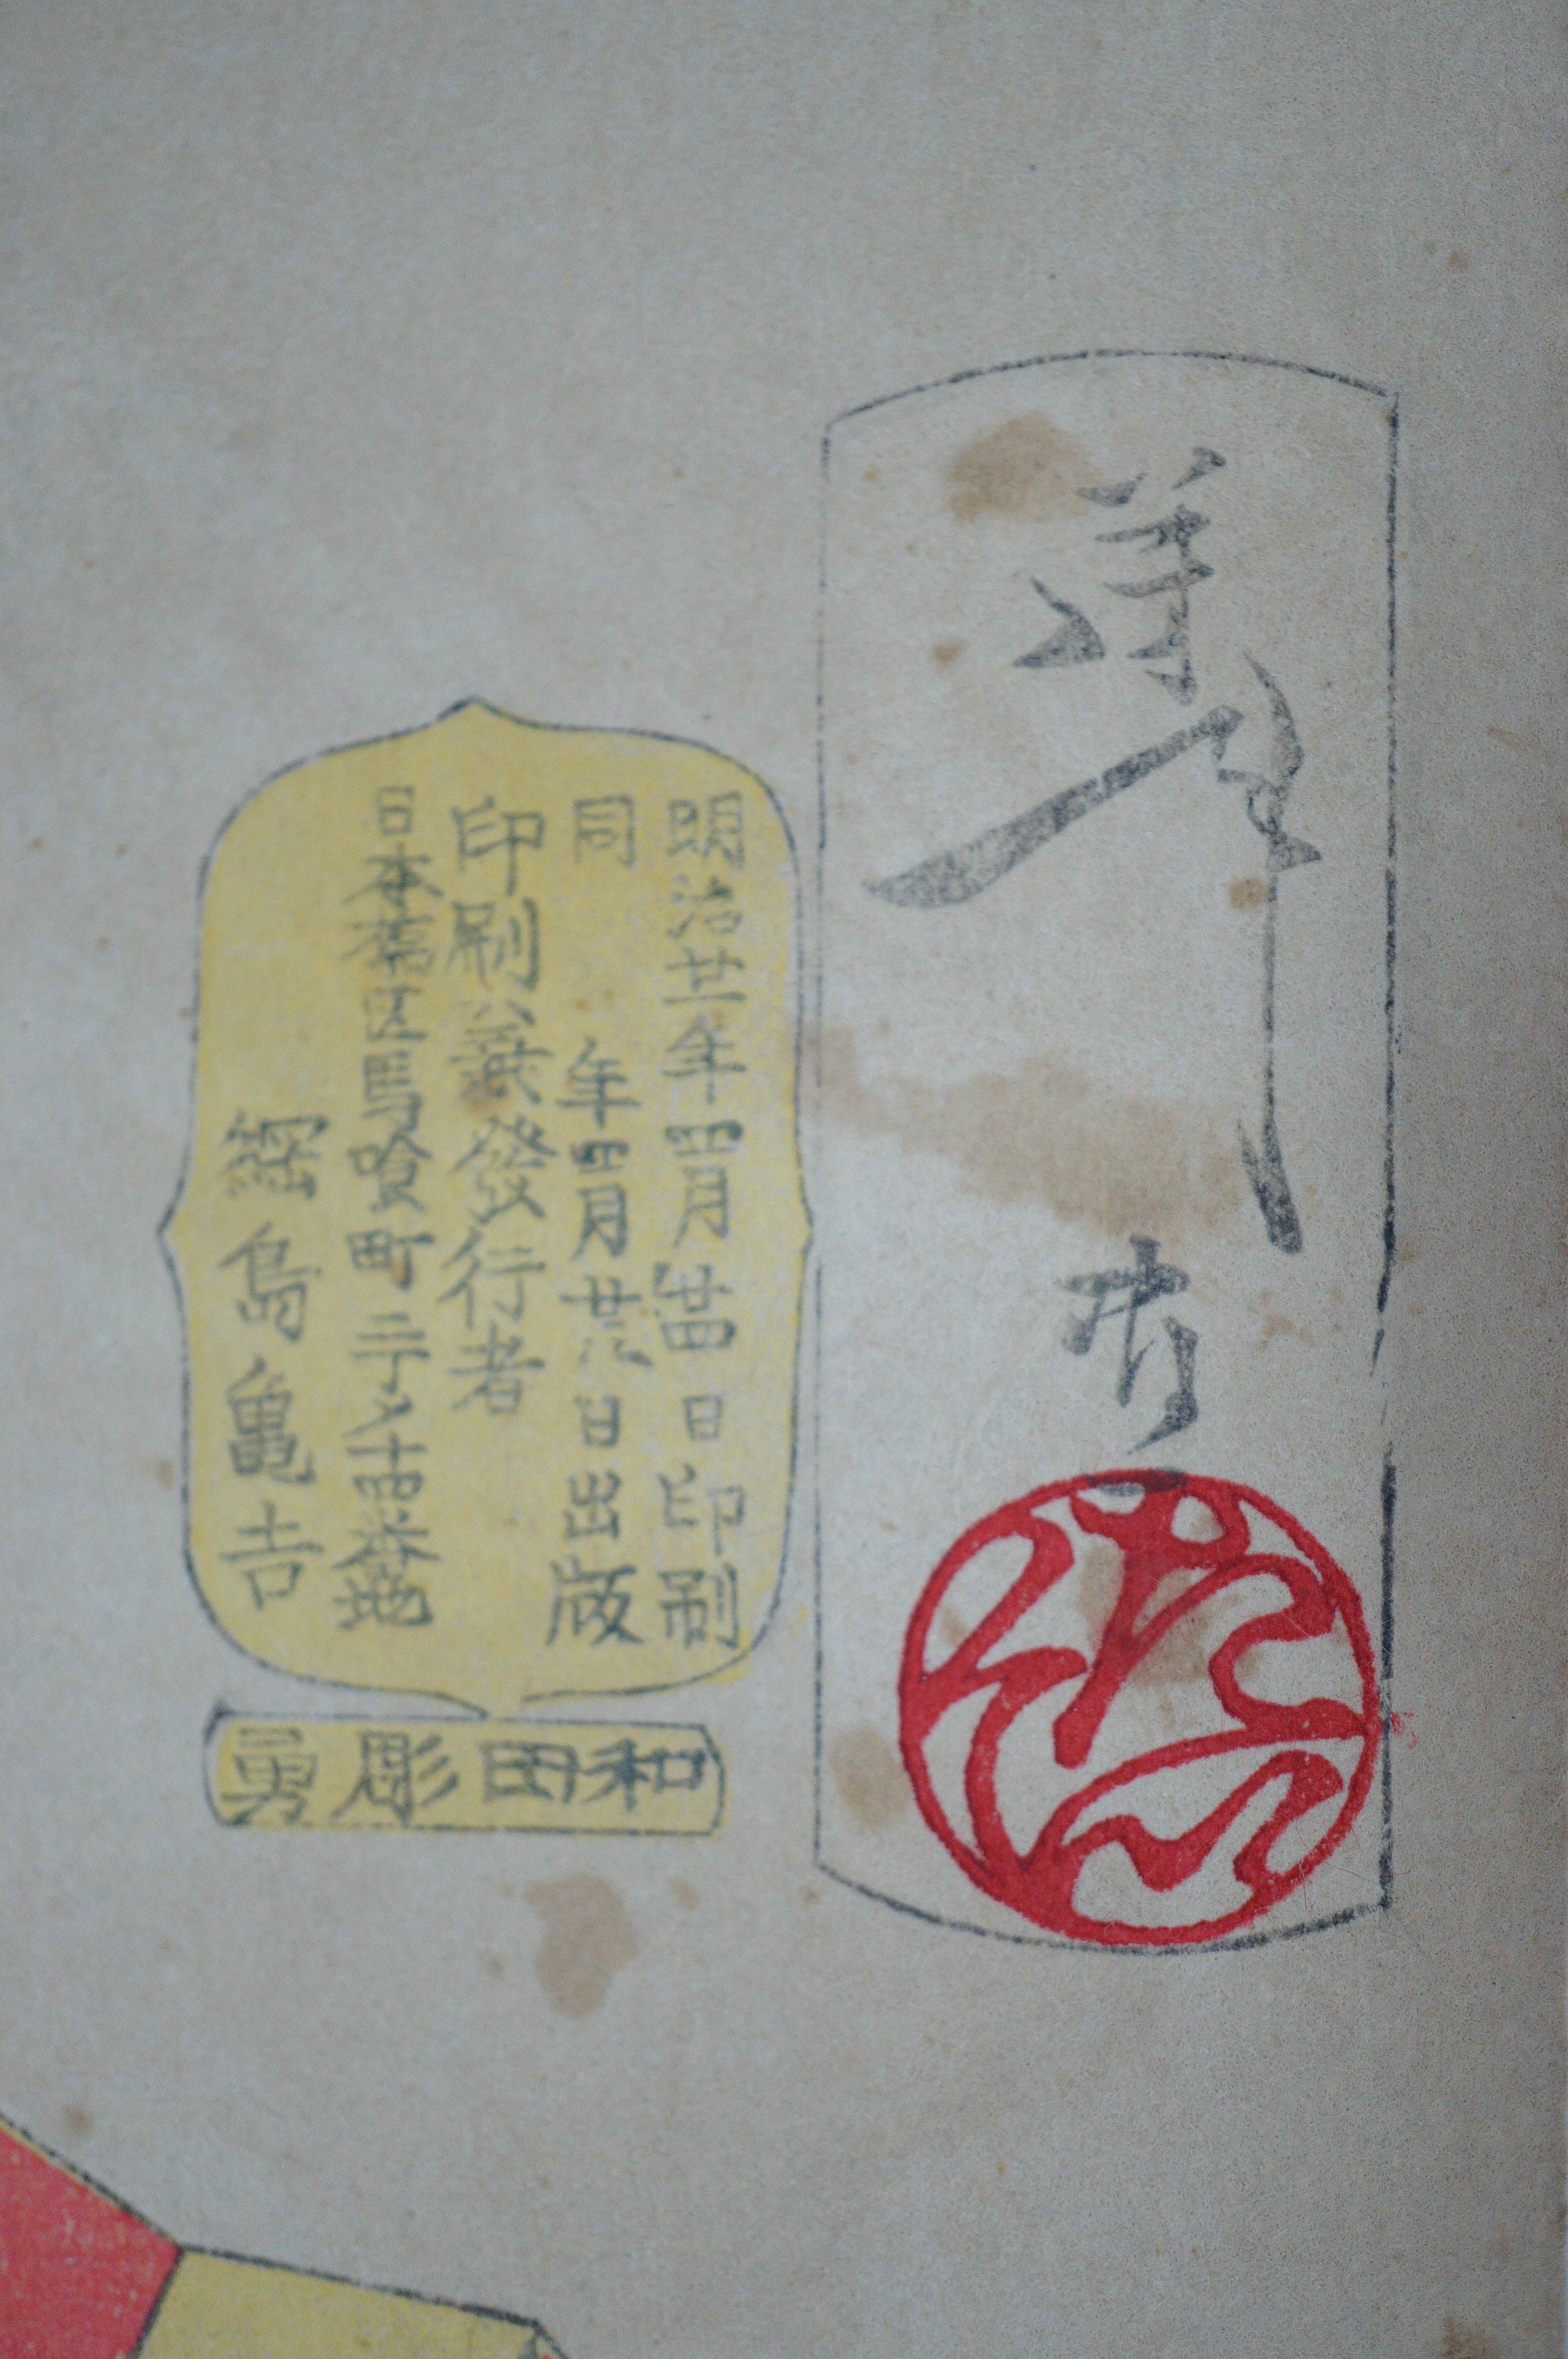 芳年
明治廿一年四月廿四日印刷
同 年四月廿六日出版
印刷兼發行者
日本橋区馬喰町二丁メ十四番地
綱島亀吉
和田彫勇